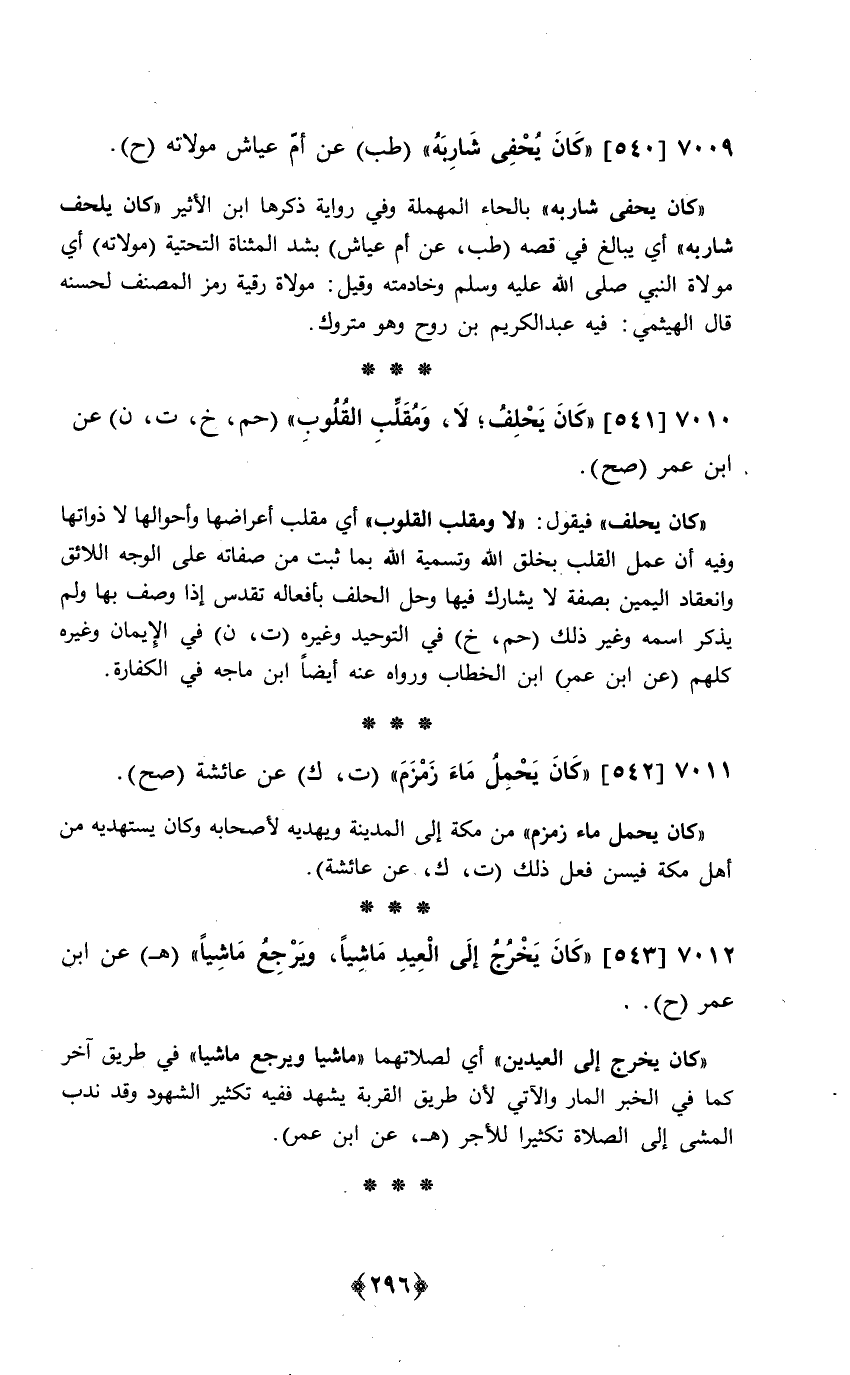 ٧٠٠٩ [٥٤٠] «كَانَ يُحْفِى شَارِبَهُ» (طب) عن أمّ عياش مولاته (ح).
«كان يحفى شاربه» بالحاء المهملة وفي رواية ذكرها ابن الأثير «كان يلحف
شاربه» أي يبالغ في قصه (طب، عن أم عياش) بشد المثناة التحتية (مولاته) أي
مولاة النبي صلى الله عليه وسلم وخادمته وقيل: مولاة رقية رمز المصنف لحسنه
قال الهيثمي: فيه عبدالكريم بن روح وهو متروك.
* * *
٧٠١٠ [٥٤١] «كَانَ يَحْلِفُ؛ لَا، وَمُقَلِّبِ القُلُوبِ» (حم، خ، ت، ن) عن
ابن عمر (صح).
«كان يحلف» فيقول: «لا ومقلب القلوب» أي مقلب أعراضها وأحوالها لا ذواتها
وفيه أن عمل القلب بخلق الله وتسمية الله بما ثبت من صفاته على الوجه اللائق
وانعقاد اليمين بصفة لا يشارك فيها وحل الحلف بأفعاله تقدس إذا وصف بها ولم
يذكر اسمه وغير ذلك (حم، خ) في التوحيد وغيره (ت، ن) في الإيمان وغيره
كلهم (عن ابن عمر) ابن الخطاب ورواه عنه أيضاً ابن ماجه في الكفارة.
* * *
٧٠١١ [٥٤٢] «كَانَ يَحْمِلُ مَاءَ زَمْزَمَ» (ت، ك) عن عائشة (صح).
«كان يحمل ماء زمزم» من مكة إلى المدينة ويهديه لأصحابه وكان يستهديه من
أهل مكة فيسن فعل ذلك (ت، ك، عن عائشة).
* * *
٧٠١٢ [٥٤٣] «كَانَ يَخْرُجُ إلَى الْعِيدِ مَاشِياً، ويَرْجِعُ مَاشِياً» (هـ) عن ابن
عمر (ح).
«كان يخرج إلى العيدين» أي لصلاتهما «ماشيا ويرجع ماشيا» في طريق آخر
كما في الخبر المار والآتي لأن طريق القربة يشهد ففيه تكثير الشهود وقد ندب
المشى إلى الصلاة تكثيرا للأجر (هـ، عن ابن عمر).
* * *
﴿٢٩٦﴾